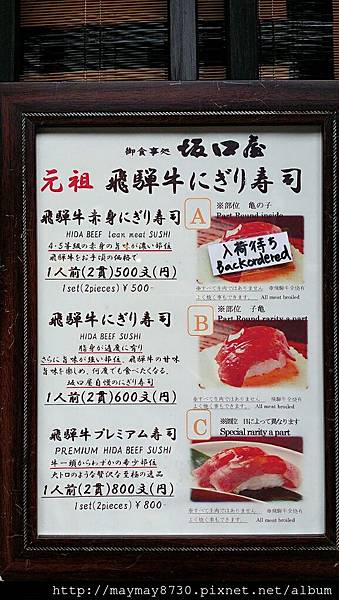 御食事処 坂口屋
元祖 飛騨牛にぎり寿司
飛騨牛赤身にぎり寿司
HIDA BEEF lean meat SUSHI
4・5等級の赤身の旨味が濃い部位
飛騨牛をお手頃の価格で
1人前(2貫)500文(円)
1set(2pieces) ¥500-
A
※部位 亀の子
Part Round inside
入荷待ち
Backordered
よく焼く事もできます。 All meat broiled
飛騨牛にぎり寿司
HIDA BEEF SUSHI
脂身が適度に有り
さらに旨味が強い部位、飛騨牛の甘味
旨味を楽しめ、何度でも食べたくなる、
坂口屋自慢のにぎり寿司
1人前(2貫)600文(円)
B
※部位 子亀
Part Round rarity a part
よく焼く事もできます。 All meat broiled
飛騨牛プレミアム寿司
PREMIUM HIDA BEEF SUSHI
牛一頭からわずかの希少部位
大トロのような贅沢な至極の逸品
1人前(2貫)800文(円)
1set(2pieces) ¥800-
C
※部位 日によって異なります
Special rarity a part
よく焼く事もできます。 All meat broiled
http://maymay8730.pixnet.net/album